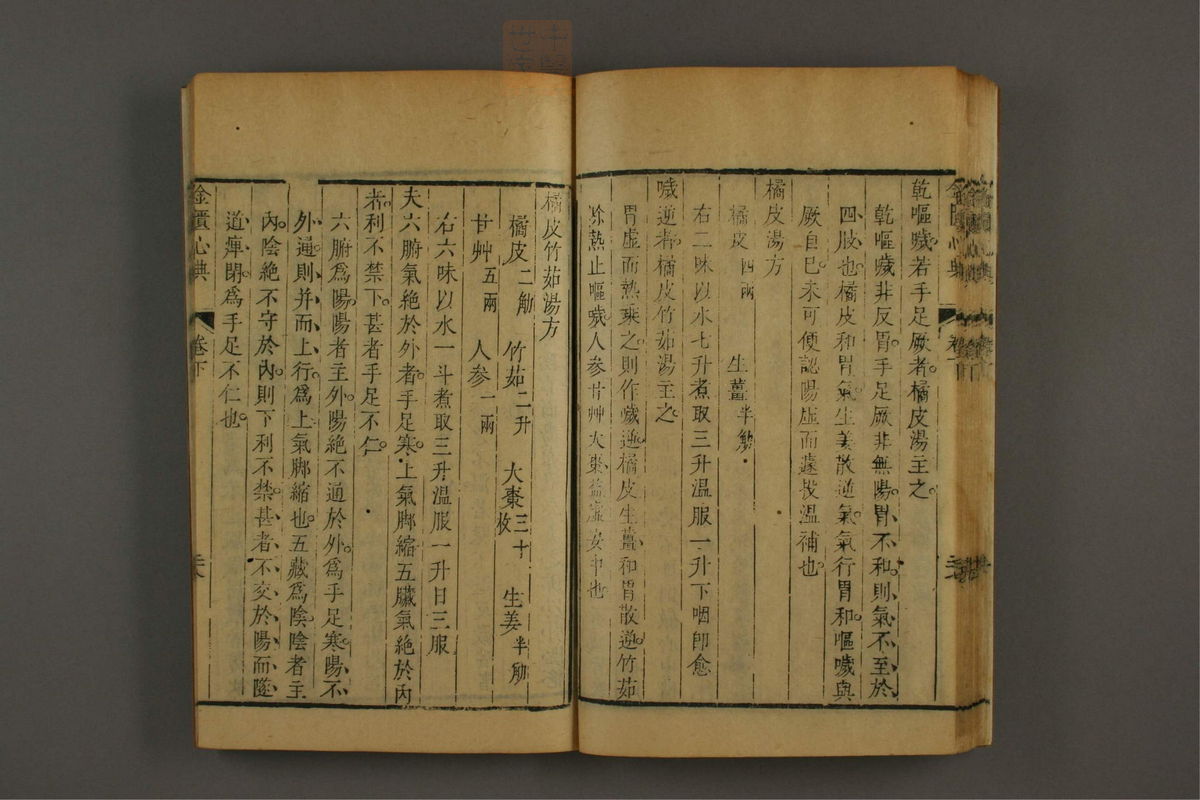 乾嘔噦若手足厥者橘皮湯主之
乾嘔噦非反胃手足厥非無陽胃不和則氣不至於
四肢也橘皮和胃氣生姜散逆氣氣行胃和嘔噦與
厥自已未可便認陽虛而遽投溫補也
橘皮湯方
橘皮四兩 生薑半觔
右二味以水七升煮取三升溫服一升下咽即愈
噦逆者橘皮竹茹湯主之
胃虛而熱乘之則作噦逆橘皮生薑和胃散逆竹茹
除熱止嘔噦人參甘艸大棗益虛安中也
橘皮竹茹湯方
橘皮二觔 竹茹二升 大棗三十枚 生姜半觔
甘艸五兩 人參一兩
右六味以水一斗煮取三升溫服一升日三服
夫六腑氣絕於外者手足寒上氣脚縮五臟氣絕於內
者利不禁下甚者手足不仁
六腑為陽陽者主外陽絕不通於外為手足寒陽不
外通則并而上行為上氣脚縮也五藏為陰陰者主
內陰絕不守於內則下利不禁甚者不交於陽而隧
道痺閉為手足不仁也
金匱心典 卷下